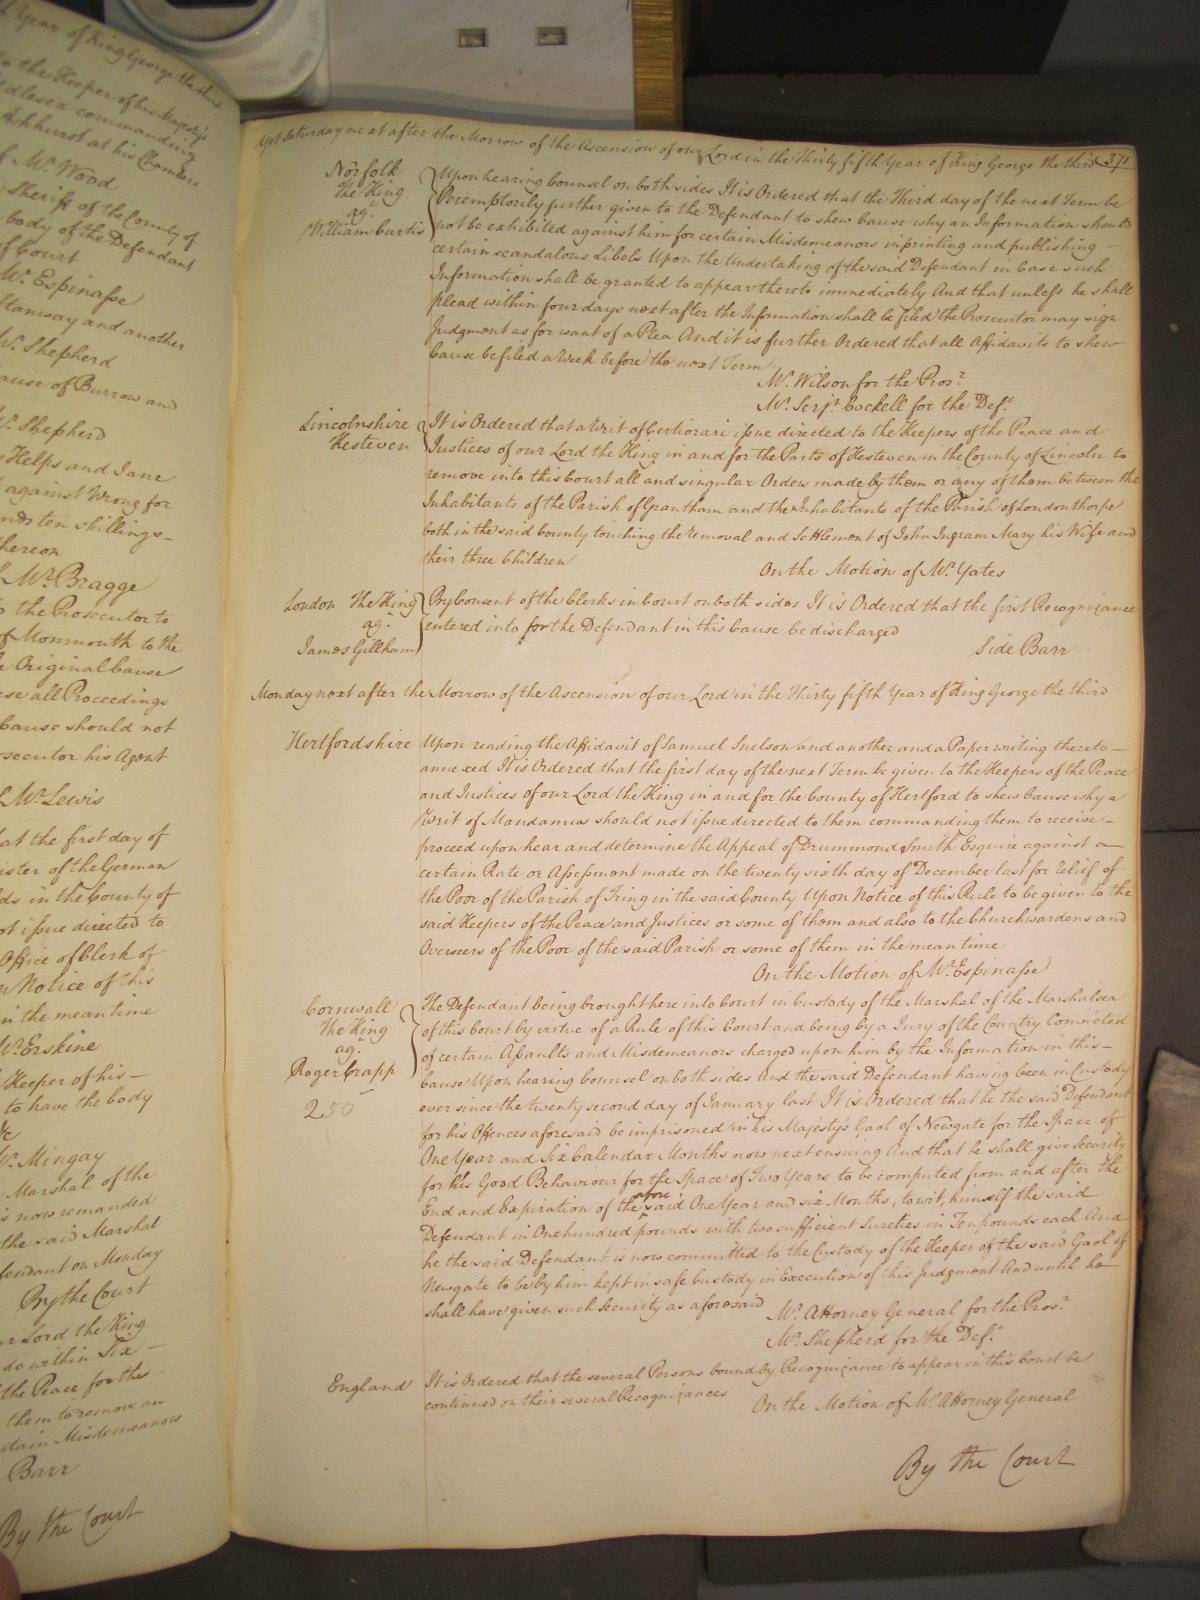 d Year of King George the third
to the Keeper of his Majesty's
Middlesex commanding
Ashhurst at his Chambers
of Mr. Wood
Sheriff of the County of
body of the Defendant
of Court
Mr. Espinasse
Stanway and another
Mr. Shepherd
Cause of Burrow and
Mr. Shepherd
Helps and Jane
against Wrong for
ten shillings
thereon
Mr. Bragge
to the Prosecutor to
of Monmouth to the
Original Cause
all Proceedings
Cause should not
Prosecutor his Agent
Mr. Lewis
that the first day of
of the German
in the County of
not issue directed to
Office of Clerk of
Notice of this
in the mean time
Mr. Erskine
Keeper of his
to have the body
Mr. Mingay
Marshal of the
is now remanded
the said Marshal
Defendant on Monday
By the Court
our Lord the King
do within Six
the Peace for the
them to remove an
certain Misdemeanors
Barr
By the Court
Yet Saturday next after the Morrow of the Ascension of our Lord in the Thirty fifth Year of King George the third 371
Norfolk
The King
agt.
William Curtis
Upon hearing Counsel on both sides It is Ordered that the Third day of the next Term be
Peremptorily further given to the Defendant to shew Cause why an Information should
not be exhibited against him for certain Misdemeanors in printing and publishing
certain scandalous Libels Upon the Undertaking of the said Defendant in Case such
Information shall be granted to appear thereto immediately And that unless he shall
plead within four days next after the Information shall be filed the Prosecutor may sign
Judgment as for want of a Plea And it is further Ordered that all Affidavits to shew
Cause be filed a Week before the next Term
Mr. Wilson for the Prosr.
Mr. Serjt. Cockell for the Deft.
Lincolnshire
Kesteven
It is Ordered that a Writ of Certiorari issue directed to the Keepers of the Peace and
Justices of our Lord the King in and for the Parts of Kesteven in the County of Lincoln to
remove into this Court all and singular Orders made by them or any of them between the
Inhabitants of the Parish of Grantham and the Inhabitants of the Parish of Londonthorpe
both in the said County touching the removal and Settlement of John Ingram Mary his Wife and
their three Children
On the Motion of Mr. Yates
London The King
agt.
James Gillham
By Consent of the Clerks in Court on both sides It is Ordered that the first Recognizance
entered into for the Defendant in this Cause be discharged
Side Barr
Monday next after the Morrow of the Ascension of our Lord in the Thirty fifth Year of King George the third
Hertfordshire
Upon reading the Affidavit of Samuel Snelson and another and a Paper writing thereto
annexed It is Ordered that the first day of the next Term be given to the Keepers of the Peace
and Justices of our Lord the King in and for the County of Hertford to shew Cause why a
Writ of Mandamus should not issue directed to them commanding them to receive
proceed upon hear and determine the Appeal of Drummond Smith Esquire against a
certain Rate or Assessment made on the twenty sixth day of December last for relief of
the Poor of the Parish of Tring in the said County Upon Notice of this Rule to be given to the
said Keepers of the Peace and Justices or some of them and also to the Churchwardens and
Overseers of the Poor of the said Parish or some of them in the mean time
On the Motion of Mr. Espinasse
Cornwall
The King
agt.
Roger Crapp
250
The Defendant being brought here into Court in Custody of the Marshal of the Marshalsea
of this Court by virtue of a Rule of this Court and being by a Jury of the Country Convicted
of certain Assaults and Misdemeanors charged upon him by the Information in this
Cause Upon hearing Counsel on both sides And the said Defendant having been in Custody
ever since the twenty second day of January last It is Ordered that he the said Defendant
for his Offences aforesaid be imprisoned in his Majesty's Gaol of Newgate for the Space of
One Year and Six Calendar Months now next ensuing And that he shall give Security
for his Good Behaviour for the Space of Two Years to be computed from and after the
End and Expiration of the aforesaid One Year and six Months, to wit, himself the said
Defendant in One hundred pounds with two sufficient Sureties in Ten pounds each And
he the said Defendant is now committed to the Custody of the Keeper of the said Gaol of
Newgate to be by him kept in safe Custody in Execution of this Judgment And until he
shall have given such Security as aforesaid
Mr. Attorney General for the Prosr.
Mr. Shepherd for the Deft.
England
It is Ordered that the several Persons bound by Recognizance to appear in this Court be
continued on their several Recognizances
On the Motion of Mr. Attorney General
By the Court